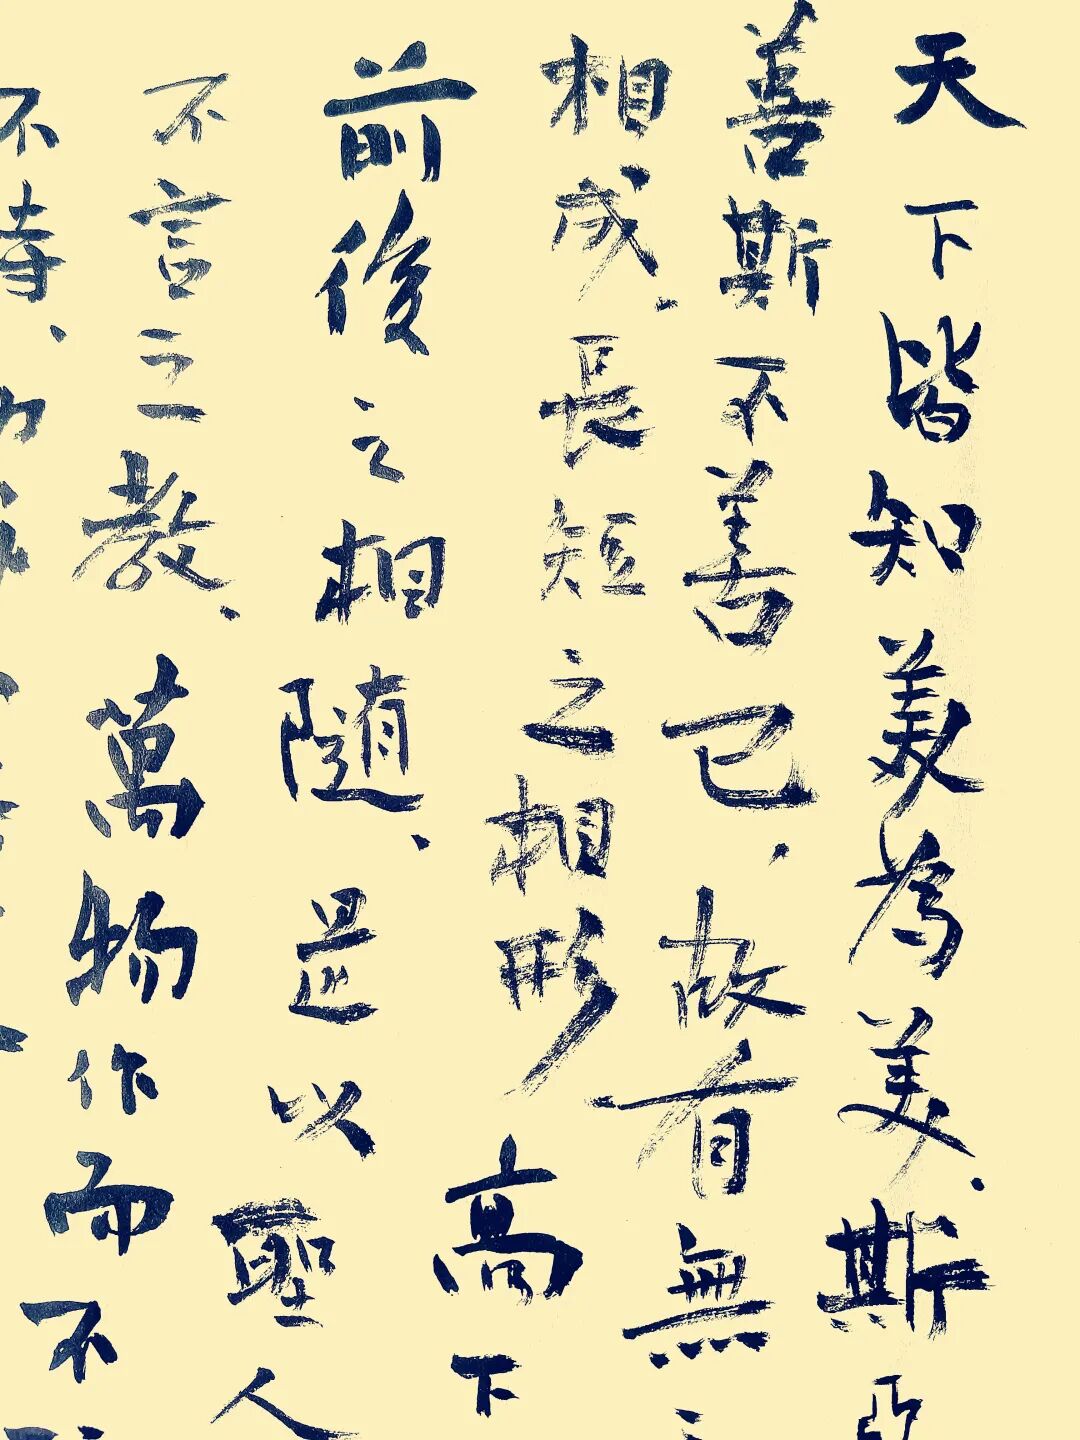 天下皆知美為美、斯
善斯不善已、故有無
相成、長短之相形高下
前後之相随、是以聖人
不言之教、萬物作而不
不恃、功